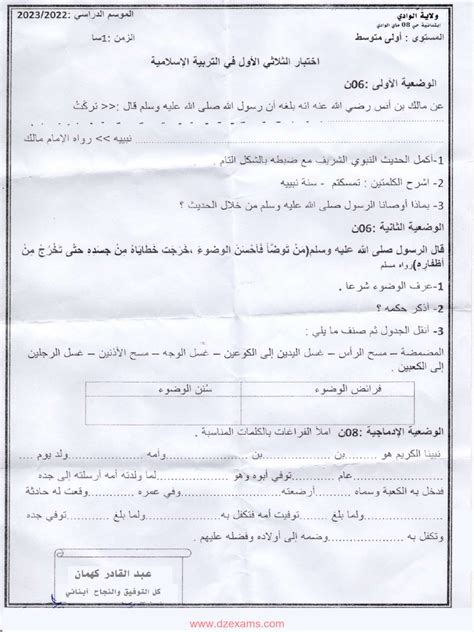 ولاية الوادي
الموسم الدراسي :2023/2022
ابتدائية حي 08 ماي الوادي
المستوى : أولى متوسط
الزمن :1سا
اختبار الثلاثي الأول في التربية الإسلامية
الوضعية الأولى :06ن
عن مالك بن أنس رضي الله عنه انه بلغه أن رسول الله صلى الله عليه وسلم قال :<< تركتُ
نبييه >> رواه الامام مالك
1-أكمل الحديث النبوي الشريف مع ضبطه بالشكل التام .
2- اشرح الكلمتين : تمسكتم - سنة نبييه
3- بماذا أوصانا الرسول صلى الله عليه وسلم من خلال الحديث ؟
الوضعية الثانية :06ن
قال الرسول صلى الله عليه وسلم(مَنْ توضّأ فأحْسَنَ الوضوء ،خَرَجَت خطاياهُ مِنْ جسده حتَّى تَخْرُجَ مِنْ
أظفاره)رواه مسلم
1-عرف الوضوء شرعا .
2- أذكر حكمه ؟
3- أنقل الجدول ثم صنف ما يلي :
المضمضة – مسح الرأس – غسل اليدين إلى الكوعين – غسل الوجه – مسح الأذنين – غسل الرجلين
إلى الكعبين .
فرائض الوضوء
سُنن الوضوء
الوضعية الإدماجية :08ن املأ الفراغات بالكلمات المناسبة .
نبينا الكريم هو ......بن..........بن..........وامه..........ولد يوم .....
..........عام..........توفي أبوه وهو..........لما ولدته أمه أرسلته إلى جده
فدخل به الكعبة وسماه ..........أرضعته..........وفي عمره..........وقعت له حادثة
..........ولما بلغ..........توفيت أمه فتكفل به..........ولما بلغ..........توفي جده
وتكفل به ..........وضمه إلى أولاده وفضله عليهم .
عبد القادر كهمان
كل التوفيق والنجاح أبنائي
www.dzexams.com